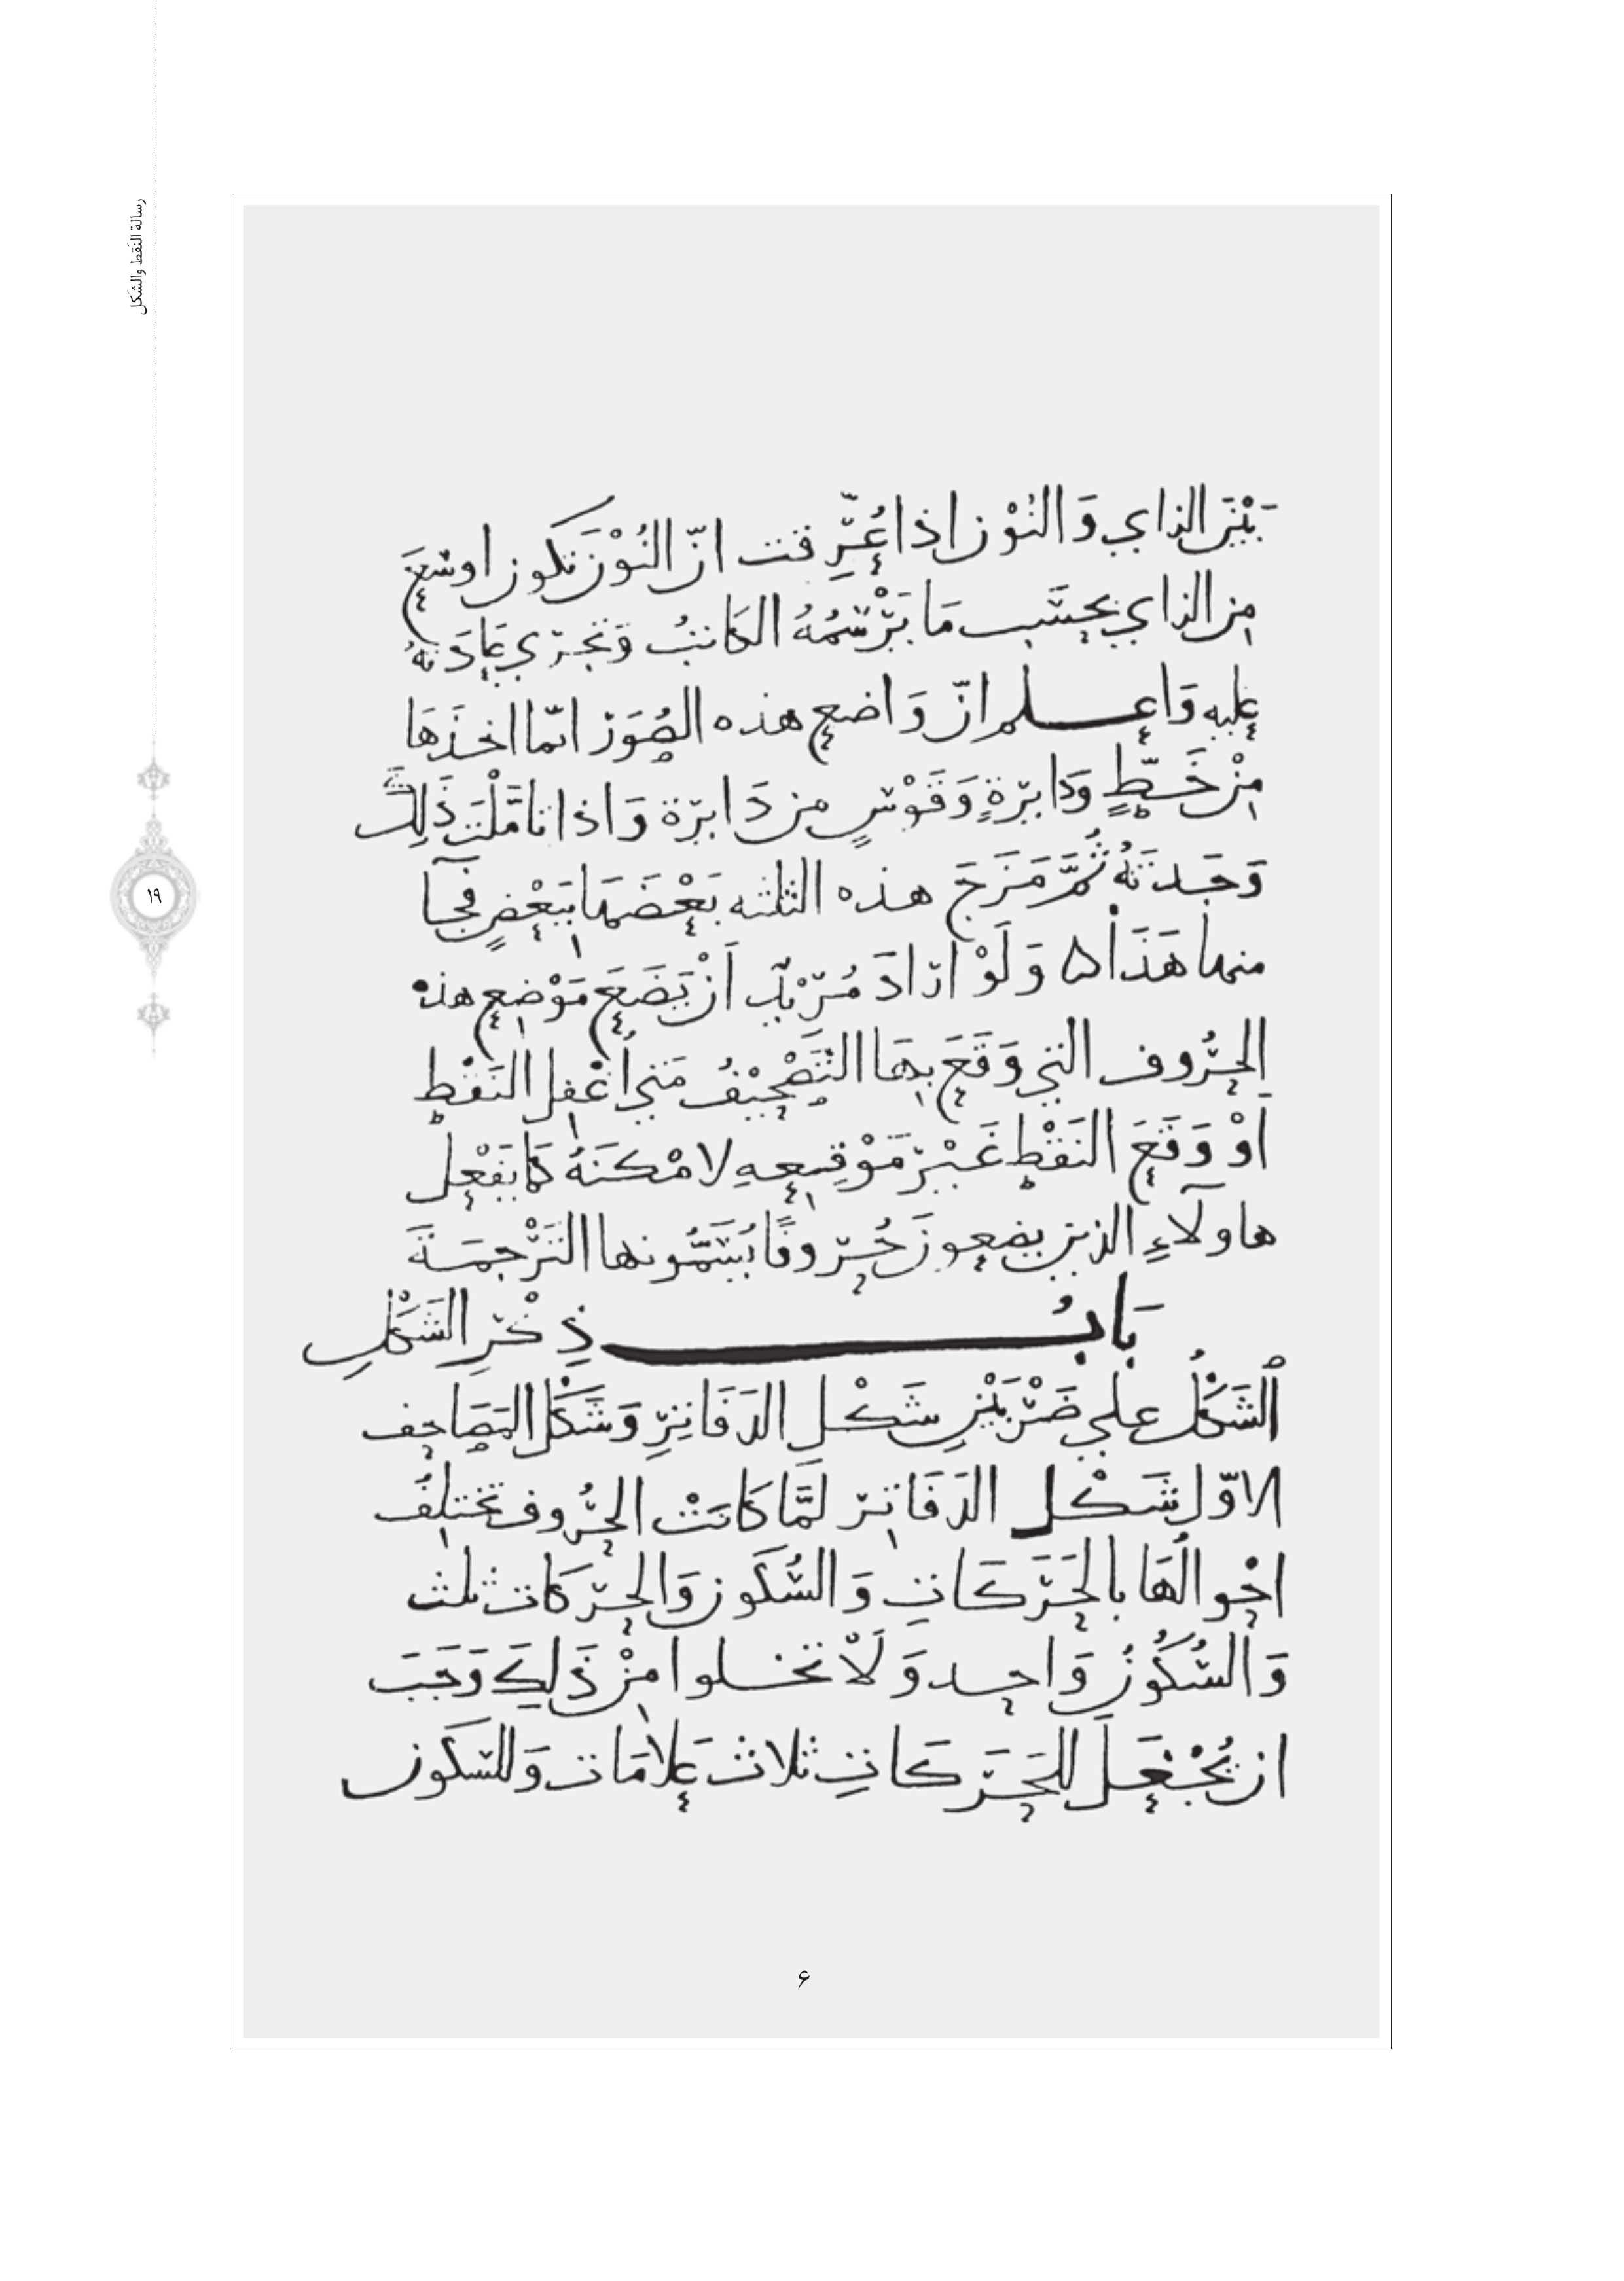 رسالة النَقط والشَكل
بَيْنَ الزاي وَ النُوْن اذا عُرِّفت انّ النُوْنَ تكون اوسَعَ
مِن الزاي بحسَب مَا يَرْسُمُهُ الكاتبُ وَتجري عَادَتهُ
عليه وَاعلم انّ وَاضع هذه الصُوَر انّما اخذَهَا
مِنْ خَطٍّ وَدايرةٍ وَقَوْسٍ من دَايرة وَاذا تامَّلْتَ ذلِكَ
وَجَدتَهُ ثُمَّ مَزَجَ هذه الثلثه بَعْضَهَا ببَعْضٍ فجَآ
منها هَذَا ه وَلَوْ ارَادَ مُرِيدٌ اَنْ يَضَعَ مَوْضع هذه
الحرُوف التي وَقَعَ بهَا التَصْحِيْفُ مَتي اُغْفل النَقْط
اَوْ وَقَعَ النَقْط غَيْرَ مَوْقِعِهِ لامْكنَهُ كمَا يَفْعل
هاولآءِ الذين يضعونَ حُروفًا يُسَمُّونها التَرْجمَةَ
بَابُ ذِكْرِ الشَكْلِ
الشَكْلُ علي ضَرْبَيْنِ شَكْل الدَفَاتِرِ وَشَكْل المَصَاحف
الاوّل شَكْل الدَفَاتِر لَمَّا كَانَتْ الحرُوف تختلِفُ
احْوالُهَا بالحَرَكَاتِ وَ السُكون وَالحرَكات ثلث
وَالسُكُونُ وَاحد وَلَاْ تخلوا مِنْ ذَلِكَ وَجَبَ
ان يُجْعَلَ للحَرَكَاتِ ثلاث عَلامَات وَللسكون
۶
١٩